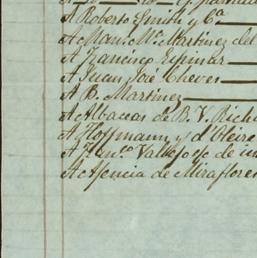 A Roberto Smith y Ca
A Man. Ma. Martinez del
A Francisco Espinar
A Juan José Cheves
A B. Martinez
A Albaceas de B. V. Rich
A Hoffmann y d'Oleire
A Fco. Vallejo s/c de in
A Agencia de Miraflores